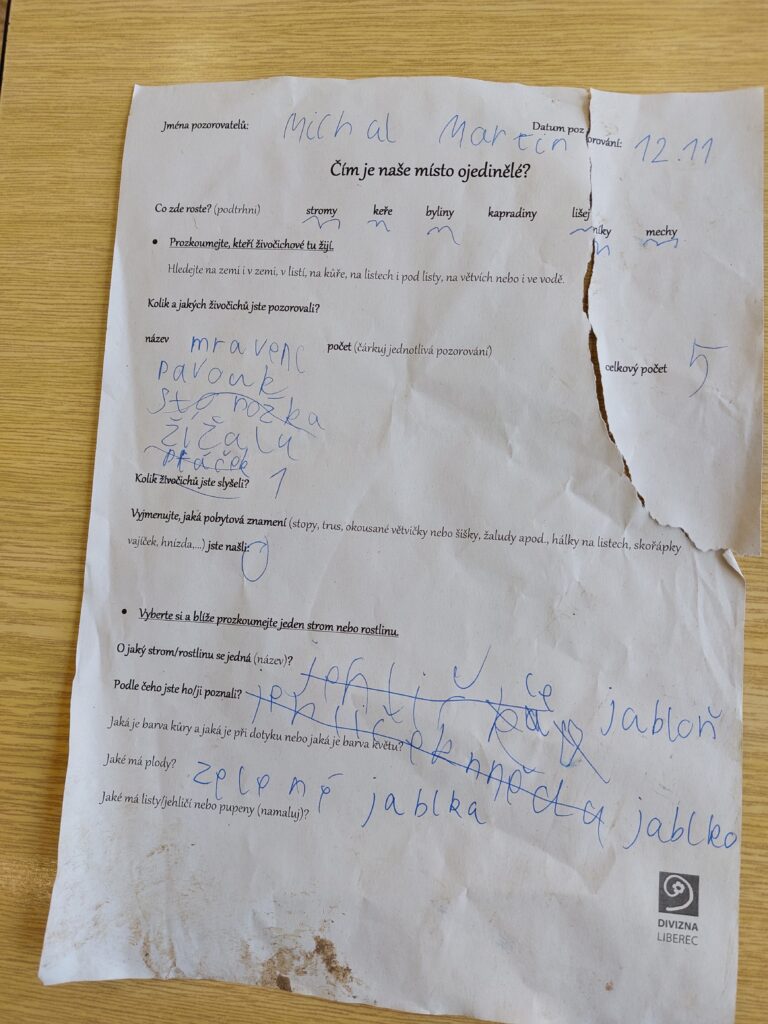 Jména pozorovatelů: Michal Martin Datum pozorování: 12.11
Čím je naše místo ojedinělé?
Co zde roste? (podtrhni) stromy keře byliny kapradiny lišejníky mechy
• Prozkoumejte, kteří živočichové tu žijí.
Hledejte na zemi i v zemi, v listí, na kůře, na listech i pod listy, na větvích nebo i ve vodě.
Kolik a jakých živočichů jste pozorovali?
název mravenc počet (čárkuj jednotlivá pozorování) celkový počet 5
pavouk
stonožka
žížalu
ptáček
Kolik živočichů jste slyšeli? 1
Vyjmenujte, jaká pobytová znamení (stopy, trus, okousané větvičky nebo šišky, žaludy apod., hálky na listech, skořápky
vajíček, hnízda,...) jste našli: 0
• Vyberte si a blíže prozkoumejte jeden strom nebo rostlinu.
O jaký strom/rostlinu se jedná (název)? jabloň
Podle čeho jste ho/ji poznali? jablko
Jaká je barva kůry a jaká je při dotyku nebo jaká je barva květu?
Jaké má plody? zelené jablka
Jaké má listy/jehličí nebo pupeny (namaluj)?
DIVIZNA
LIBEREC